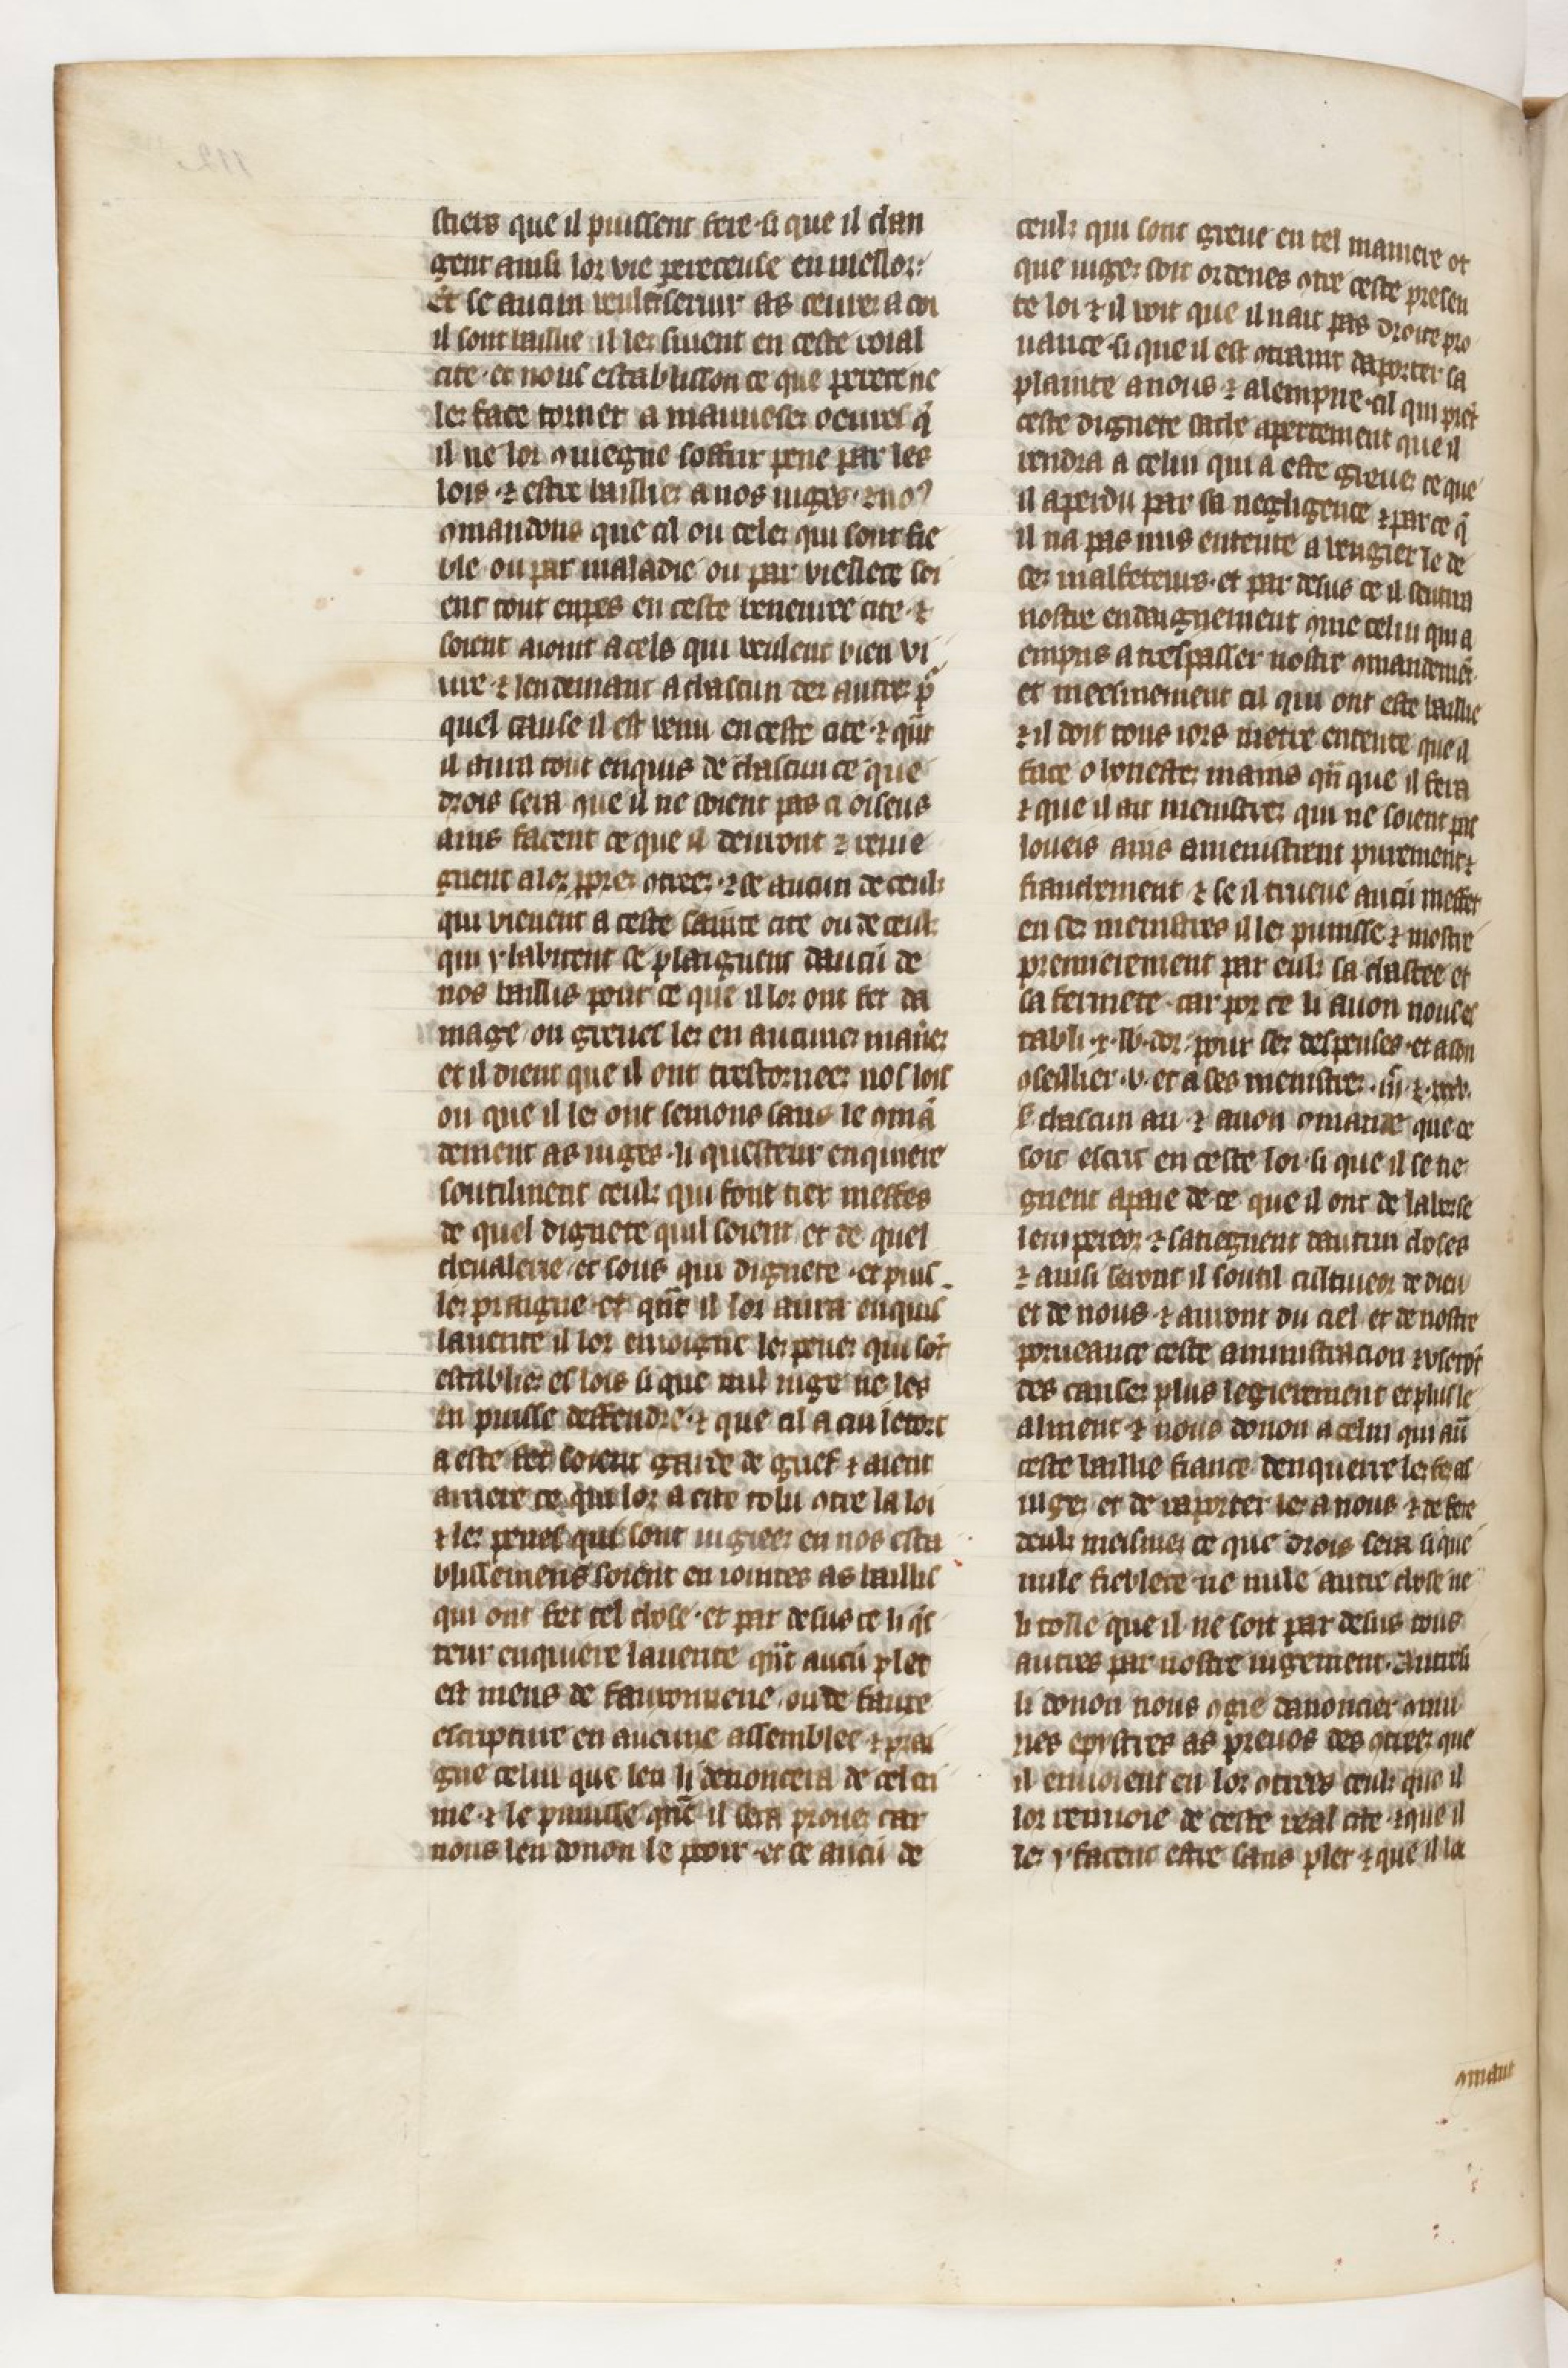 stiers que il puissent fere · si que il chan
gent ainsi lor vie pereceuse en mellor :
Et se aucun veulent servir as cevres a coi
il sont baillie il les livrent en ceste roial
cite · et nous establisson ce que perece ne
les face torner a mauveses oevres q̃
il ne lor ꝯviegne soffrir pene par les
lois · ⁊ estre baillies a nos iuges · ⁊ noꝰ
ꝯmandons que cil ou celes qui sont fie
ble ou par maladie ou par viellece soi
ent tout enpes en ceste
soient aioint a cels qui veulent bien vi
vre · ⁊ len demant a chascun des autres p̃
quel cause il est venu en ceste cite · ⁊ qñt
il aura tout enquis de chascun ce que
drois sera que il ne soient pas ci oiseus
ains facent ce que il devront ⁊ revie
gnent a lor ꝓpres ꝯtrees · ⁊ se aucun de ceuls
qui vienent a ceste sainte cite ou de ceuls
qui y habitent se plaignent daucũ de
nos baillis pour ce que il lor ont fet da
mage ou grevet les en aucunes manie͛s
et il dient que il ont trestornees nos lois
ou que il les ont semons sans le ꝯmã
dement as iuges · li questeur enquiere
soutilment ceuls qui font tiex meffes
de quel dignete quil soient et de quel
chevalerie et sous qui dignete · et puis
les praigne et qñt il lor aura enquis
la verite il lor envoigne les penes qui sõt
establies es lois si que nul iuge ne les
en puisse deffendre · ⁊ que cil a cui le tort
a este fet soient garde de grief ⁊ aient
arriere ce qui lor a este tolu ꝯtre la loi
⁊ les penes qui sont iugiees en nos esta
blissemens soient en iointes as baillis
qui ont fet tel chose · et par desus ce li q̃s
teur enquiere la verite qñt aucũ plet
est meus de faus ou de fausse
escripture en aucune assemblee · ⁊ prai
gne celui que len li denoncera de cel cri
me · ⁊ le punisse qñt il sera prouves car
nous len donon le pooir · et se aucũ de
ceuls qui sont greve en tel maniere ot
que iuges soit ordenes ꝯtre ceste presen
te loi ⁊ il voit que il nait pas droite pro
vance · si que il est ꝯtraint daporter sa
plainte a nous ⁊ a lempire · cil qui prẽt
ceste dignete sache apertement que il
rendra a celui qui a este greves ce que
il a perdu par sa negligence ⁊ par ce q̃
il na pas mis entente a vengier le de
ses malfeteurs · et par desus ce il sentira
nostre endaignement ꝯme celui qui a
empris a trespasser nostre ꝯmandemẽt
et meesmement cil qui ont este baillie
⁊ il doit tous iors metre entente que il
face o honestes mains qñ que il fera
⁊ que il ait menistres qui ne soient pas
loueis ains amenistrent purement ⁊
franchement ⁊ se il trueve aucũ meffet
en ses menistres il les punisse ⁊ mostre
premierement par euls sa chastee et
sa fermete · car por ce li avon nous es
tabli · x · lb · dor · pour ses despenses · et a son
ꝯseillier · v · et a ses menistres
chascun an · ⁊ avon ꝯmande que ce
soit escrit en ceste loi · si que il se tie
gnent apaie de ce que il ont de la borse
lempereor · ⁊ satiegnent dautrui choses
⁊ ainsi seront il soutil cultiveor de dieu
et de nous · ⁊ auront du ciel et de nostre
porveance ceste aministracion ⁊ userõt
des causes plus legierement et plus le
alment · ⁊ nous donon a celui qui aũ
ceste baillie fiance denquerre les fe as
iuges et de raporter les a nous ⁊ de fere
deuls meismes ce que drois sera si que
nule fieblece ne nule autre chose ne
li tolle que il ne soit par desus tous
autres par nostre iugement · Autresi
li donon nous ꝯgie danoncier ꝯmu
nes epystres as prevos des ꝯtrees que
il envoient en lor ꝯtrees ceuls que il
lor renvoie de ceste real cite · ⁊ que il
les y facent estre sans plet ⁊ que il la
ꝯmant